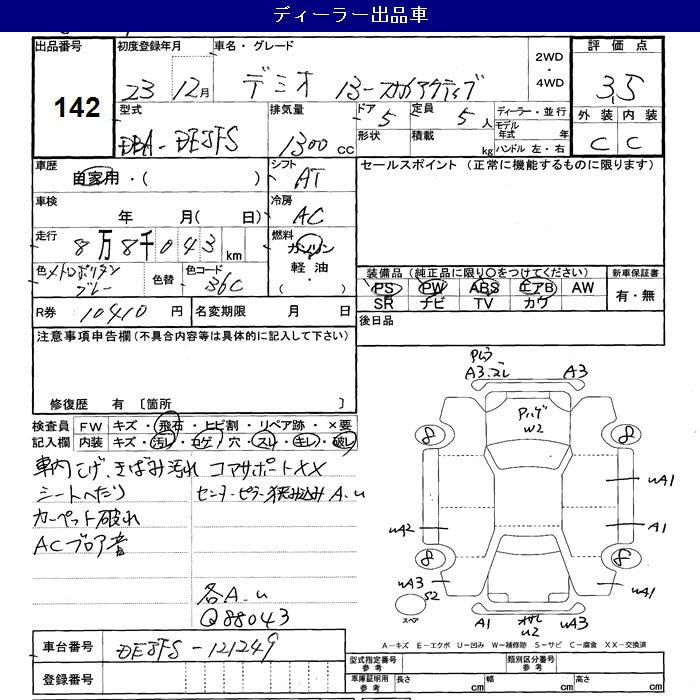 ディーラー出品車
出品番号
142
初度登録年月
23 12月
車名・グレード
デミオ 13-スカイアクティブ
2WD
・
4WD
評価点
3.5
外装 内装
C C
型式
DBA-DEJFS
排気量
1300 cc
ドア 5
形状
定員 5 人
積載 kg
ディーラー・並行
モデル年式 年
ハンドル 左・右
車歴
自家用・( )
シフト
AT
セールスポイント (正常に機能するものに限ります)
車検
年 月( 日)
冷房
AC
走行
8万8千043 km
燃料
ガソリン
軽油
・
( )
色 メトロポリタングレー
色替
色コード
36C
装備品 (純正品に限り〇をつけてください)
PS PW ABS エアB AW
SR ナビ TV カワ
新車保証書
有・無
R券 10410 円
名変期限 月 日
後日品
注意事項申告欄(不具合内容等は具体的に記入して下さい)
修復歴 有 〔箇所 〕
検査員記入欄
FW キズ・飛石・ヒビ割・リペア跡・×要
内装 キズ・汚レ・コゲ・穴・スレ・キレ・破レ
車内こげ、きばみ汚れ コアサポートXX
シートへたり
センターピラー挟み込みA.u
カーペット破れ
ACブロア音
各A.u
Q88043
A3 A3
Pハゲ
W2
8 8
8 8
uA1
A1
uA2
uA3 S2
uA1
スペア
A1
W2
uA3
A-キズ E-エクボ U-凹み W-補修跡 S-サビ C-腐食 XX-交換済
車台番号 DEJFS-121249
登録番号
型式指定番号 参考
類別区分番号 参考
車庫証明用 参考
長さ cm
幅 cm
高さ cm